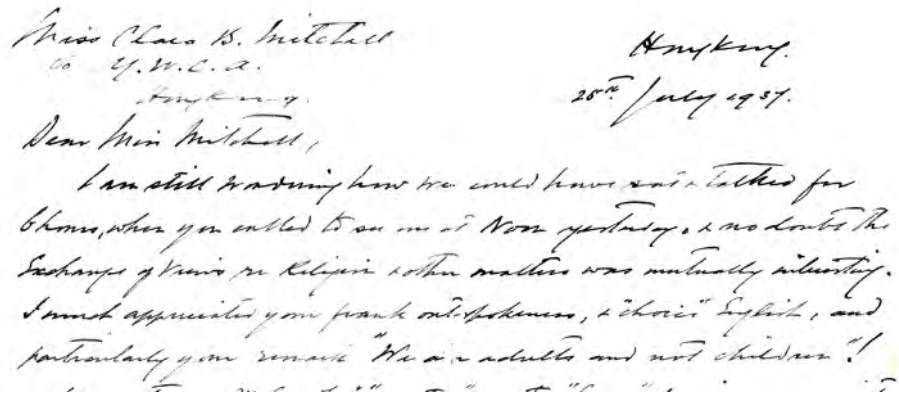 Miss Clara B. Mitchell
c/o Y.W.C.A.
Hongkong.
Hongkong.
28th July 1937.
Dear Miss Mitchell,
I am still wondering how we could have sat & talked for
6 hours, when you called to see me at Noon yesterday, & no doubt the
Exchange of Views re Religion & other matters was mutually interesting.
I much appreciated your frank outspokenness, & "choice" English, and
particularly your remark "We are adults and not children"!